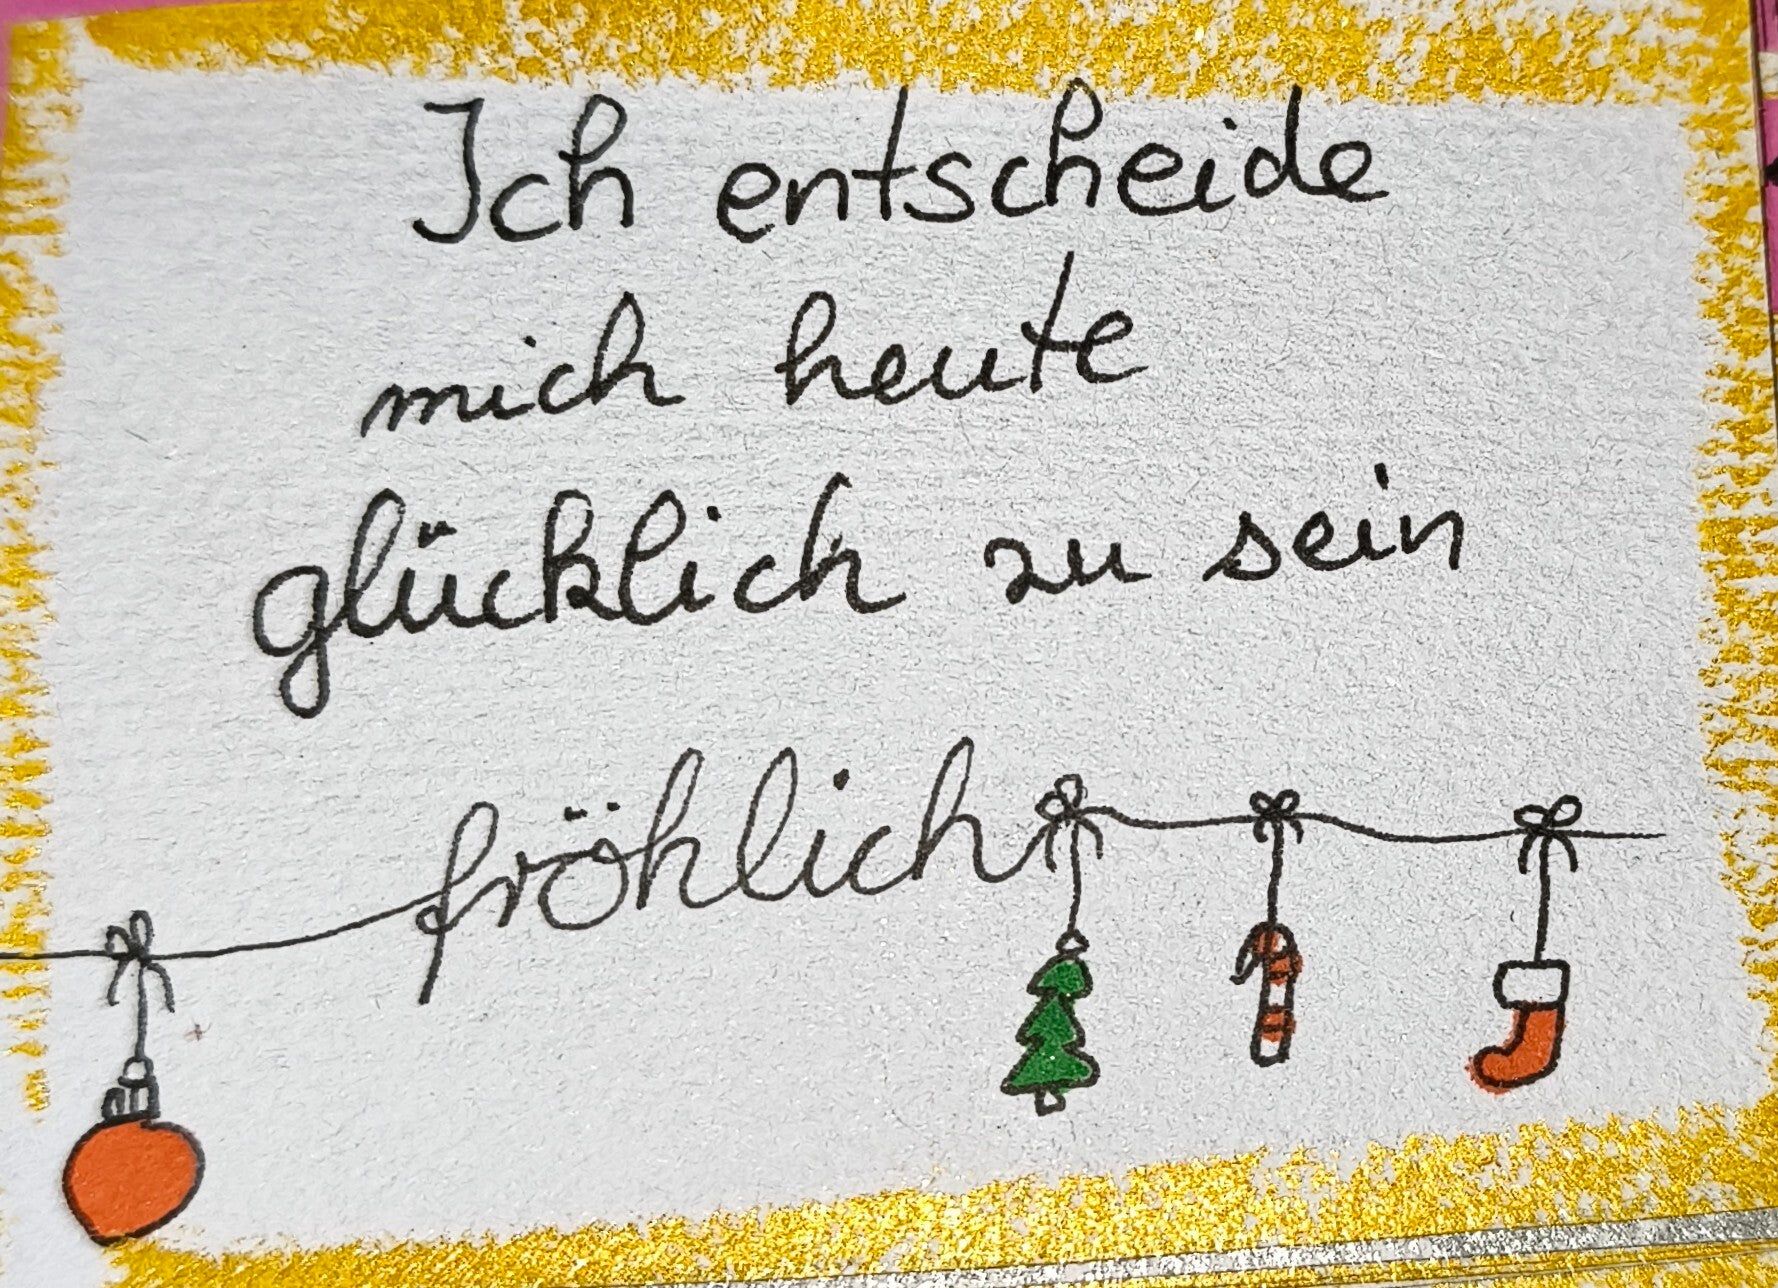 Ich entscheide
mich heute
glücklich zu sein
fröhlich